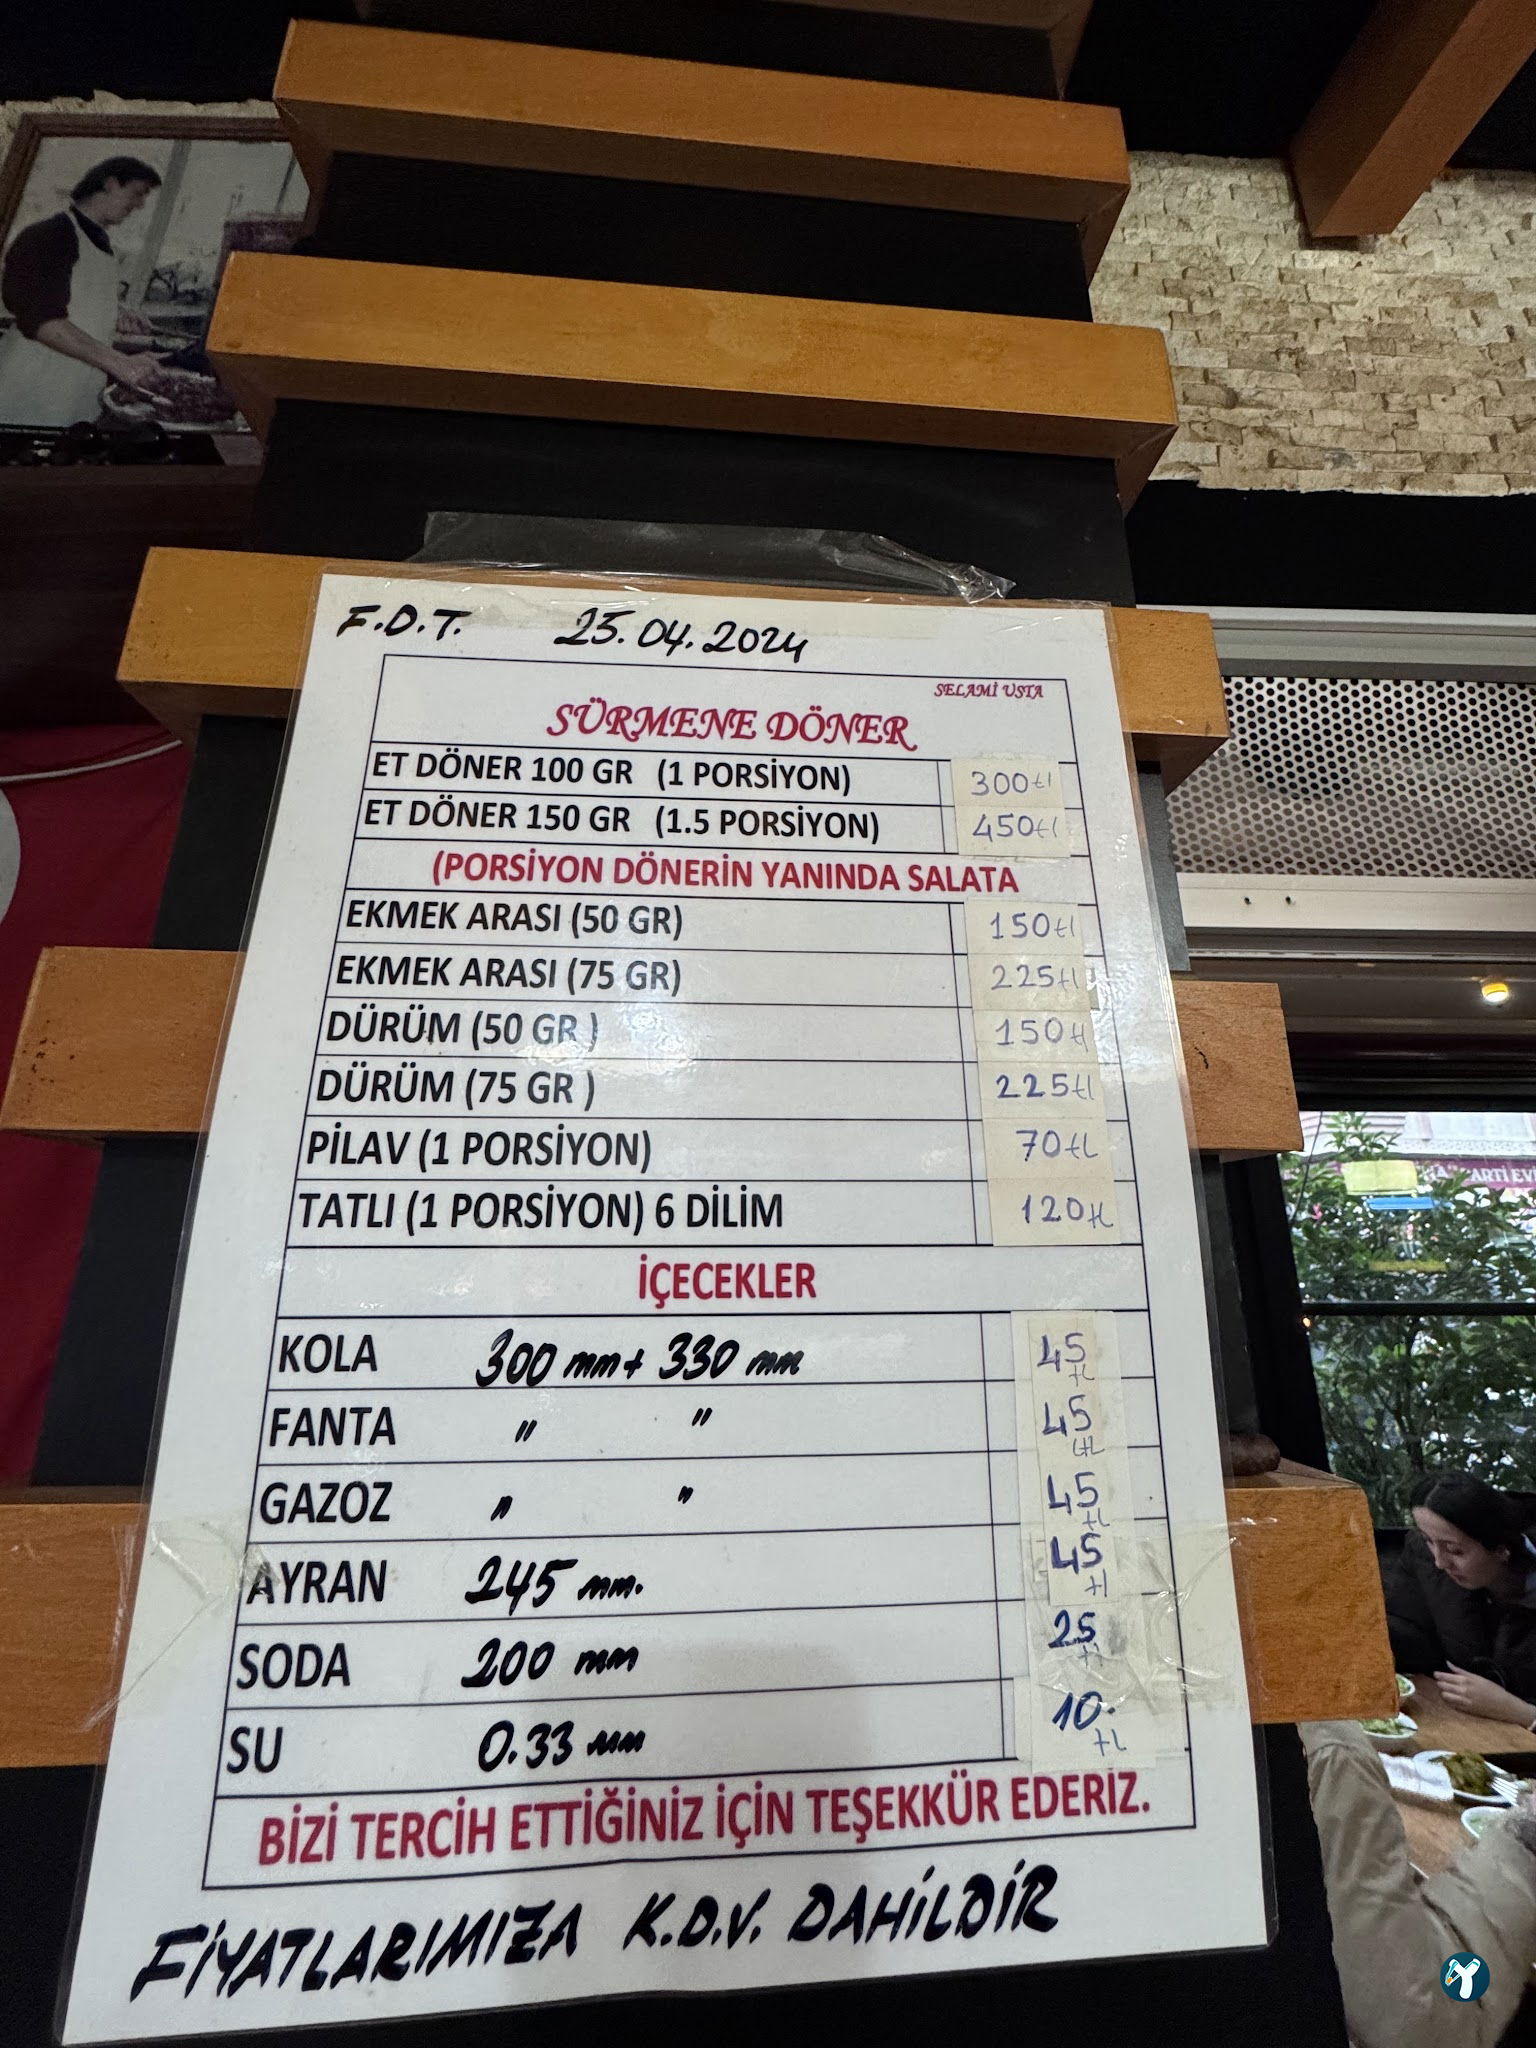 F.D.T. 25.04.2024
SELAMİ USTA
SÜRMENE DÖNER
ET DÖNER 100 GR (1 PORSİYON) 300tl
ET DÖNER 150 GR (1.5 PORSİYON) 450tl
(PORSİYON DÖNERİN YANINDA SALATA
EKMEK ARASI (50 GR) 150tl
EKMEK ARASI (75 GR) 225tl
DÜRÜM (50 GR ) 150tl
DÜRÜM (75 GR ) 225tl
PİLAV (1 PORSİYON) 70tL
TATLI (1 PORSİYON) 6 DİLİM 120tL
İÇECEKLER
KOLA 300 mm + 330 mm 45 tL
FANTA " " 45 tL
GAZOZ " " 45 tL
AYRAN 245 mm. 45 tl
SODA 200 mm 25 tl
SU 0.33 mm 10. tL
BİZİ TERCİH ETTİĞİNİZ İÇİN TEŞEKKÜR EDERİZ.
FİYATLARIMIZA K.D.V. DAHİLDİR
ARTİ EV